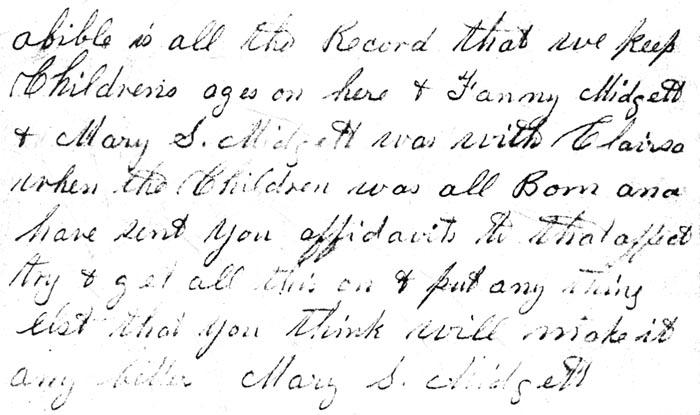 abible is all the Record that we keep
Childrens ages on here & Fanny Midgett
& Mary S. Midgett was with Clairsa
when the Children was all Born and
have sent you affidavits to that affect
try & get all this on & put any thing
elst that you think will make it
any better Mary S. Midgett